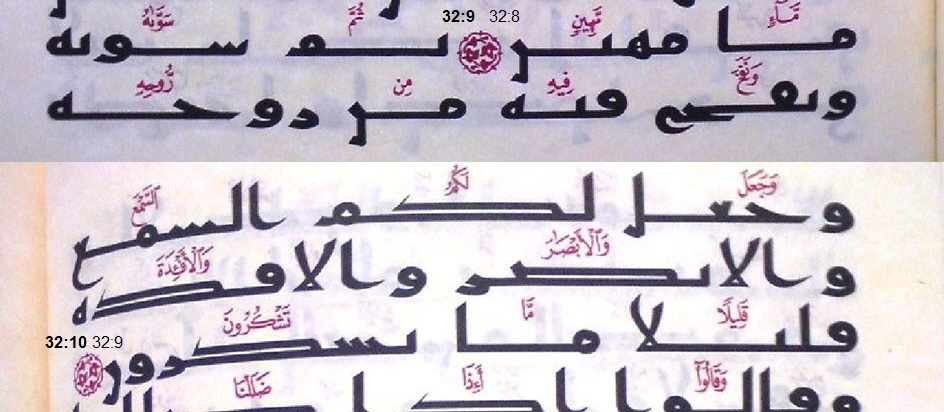 32:9 32:8
مَّآءٍ مَّهِينٍ ثُمَّ سَوَّىٰهُ
ما مهىں ٮم سوٮه
وَنَفَخَ فِيهِ مِن رُّوحِهِ
وٮڡح ڡٮه مں روحه
وَجَعَلَ لَكُمُ ٱلسَّمْعَ
وحعل لكم السمع
وَٱلْأَبْصَٰرَ وَٱلْأَفْـِٔدَةَ
والاٮصر والاڡده
قَلِيلًا مَّا تَشْكُرُونَ
ڡلٮلا ما ٮسكروں
32:10 32:9
وَقَالُوٓا۟ أَءِذَا ضَلَلْنَا